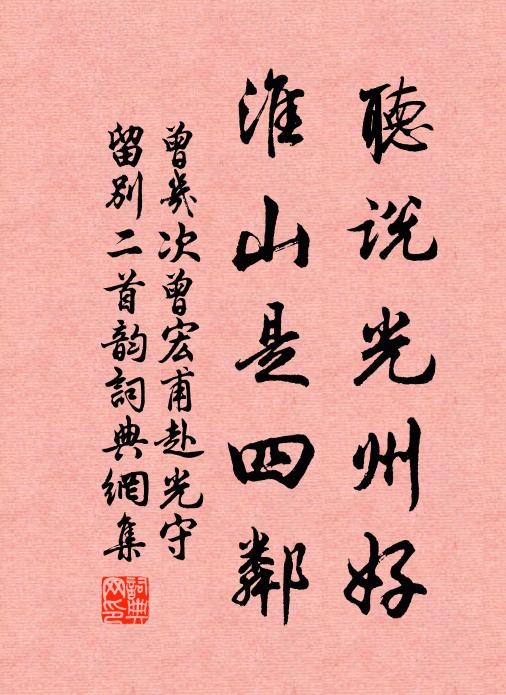 聽説光州好
淮山是四鄰
曾幾次曾宏甫赴光守
留別二首韵詞典網集
詞典网印